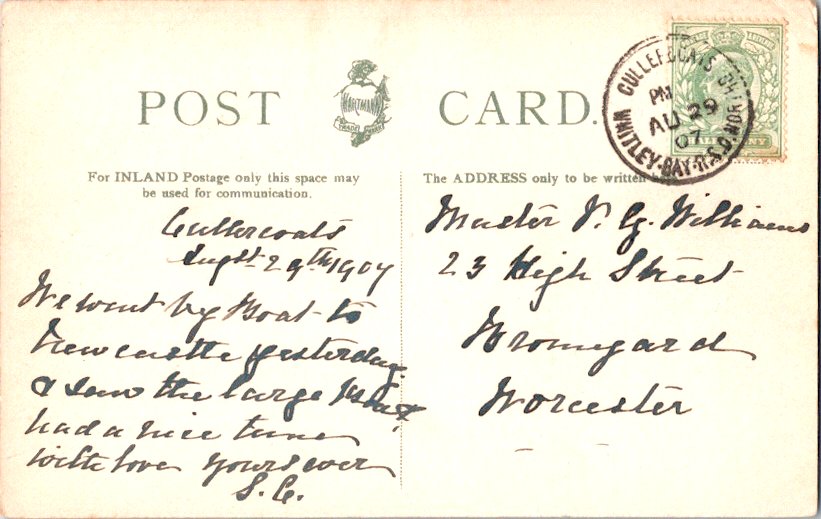 POST CARD.
HARTMANN
TRADE MARK
For INLAND Postage only this space may
be used for communication.
The ADDRESS only to be written
CULLERCOATS
PM
AU 29
07
WHITLEY-BAY-R.S.O.
HALFPENNY
Cullercoats
Augst 29th 1907
We went by Boat to
Newcastle yesterday
& saw the large Boat
had a nice time
with love yours ever
Master V. G. Williams
23 High Street
Bromyard
Worcester